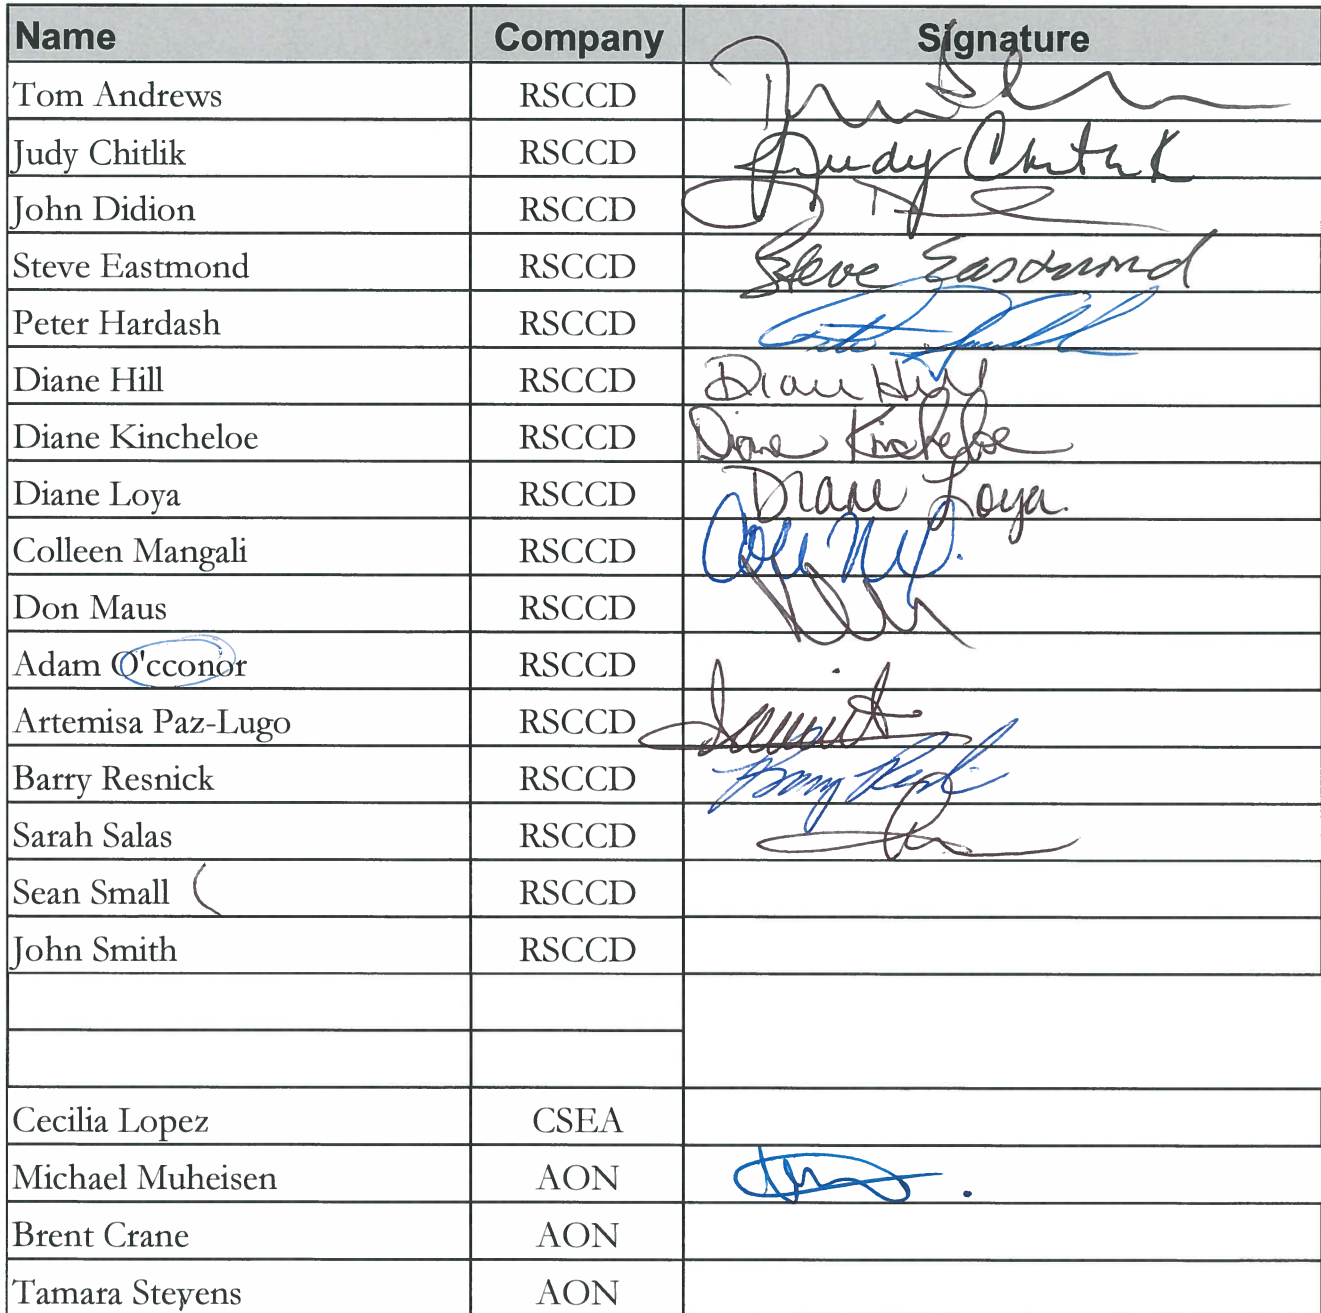 Name Company Signature
Tom Andrews RSCCD
Judy Chitlik RSCCD Judy Chitlik
John Didion RSCCD
Steve Eastmond RSCCD Steve Eastmond
Peter Hardash RSCCD
Diane Hill RSCCD Diane Hill
Diane Kincheloe RSCCD Diane Kincheloe
Diane Loya RSCCD Diane Loya.
Colleen Mangali RSCCD
Don Maus RSCCD
Adam O'cconor RSCCD
Artemisa Paz-Lugo RSCCD
Barry Resnick RSCCD
Sarah Salas RSCCD
Sean Small RSCCD
John Smith RSCCD
Cecilia Lopez CSEA
Michael Muheisen AON
Brent Crane AON
Tamara Steyens AON